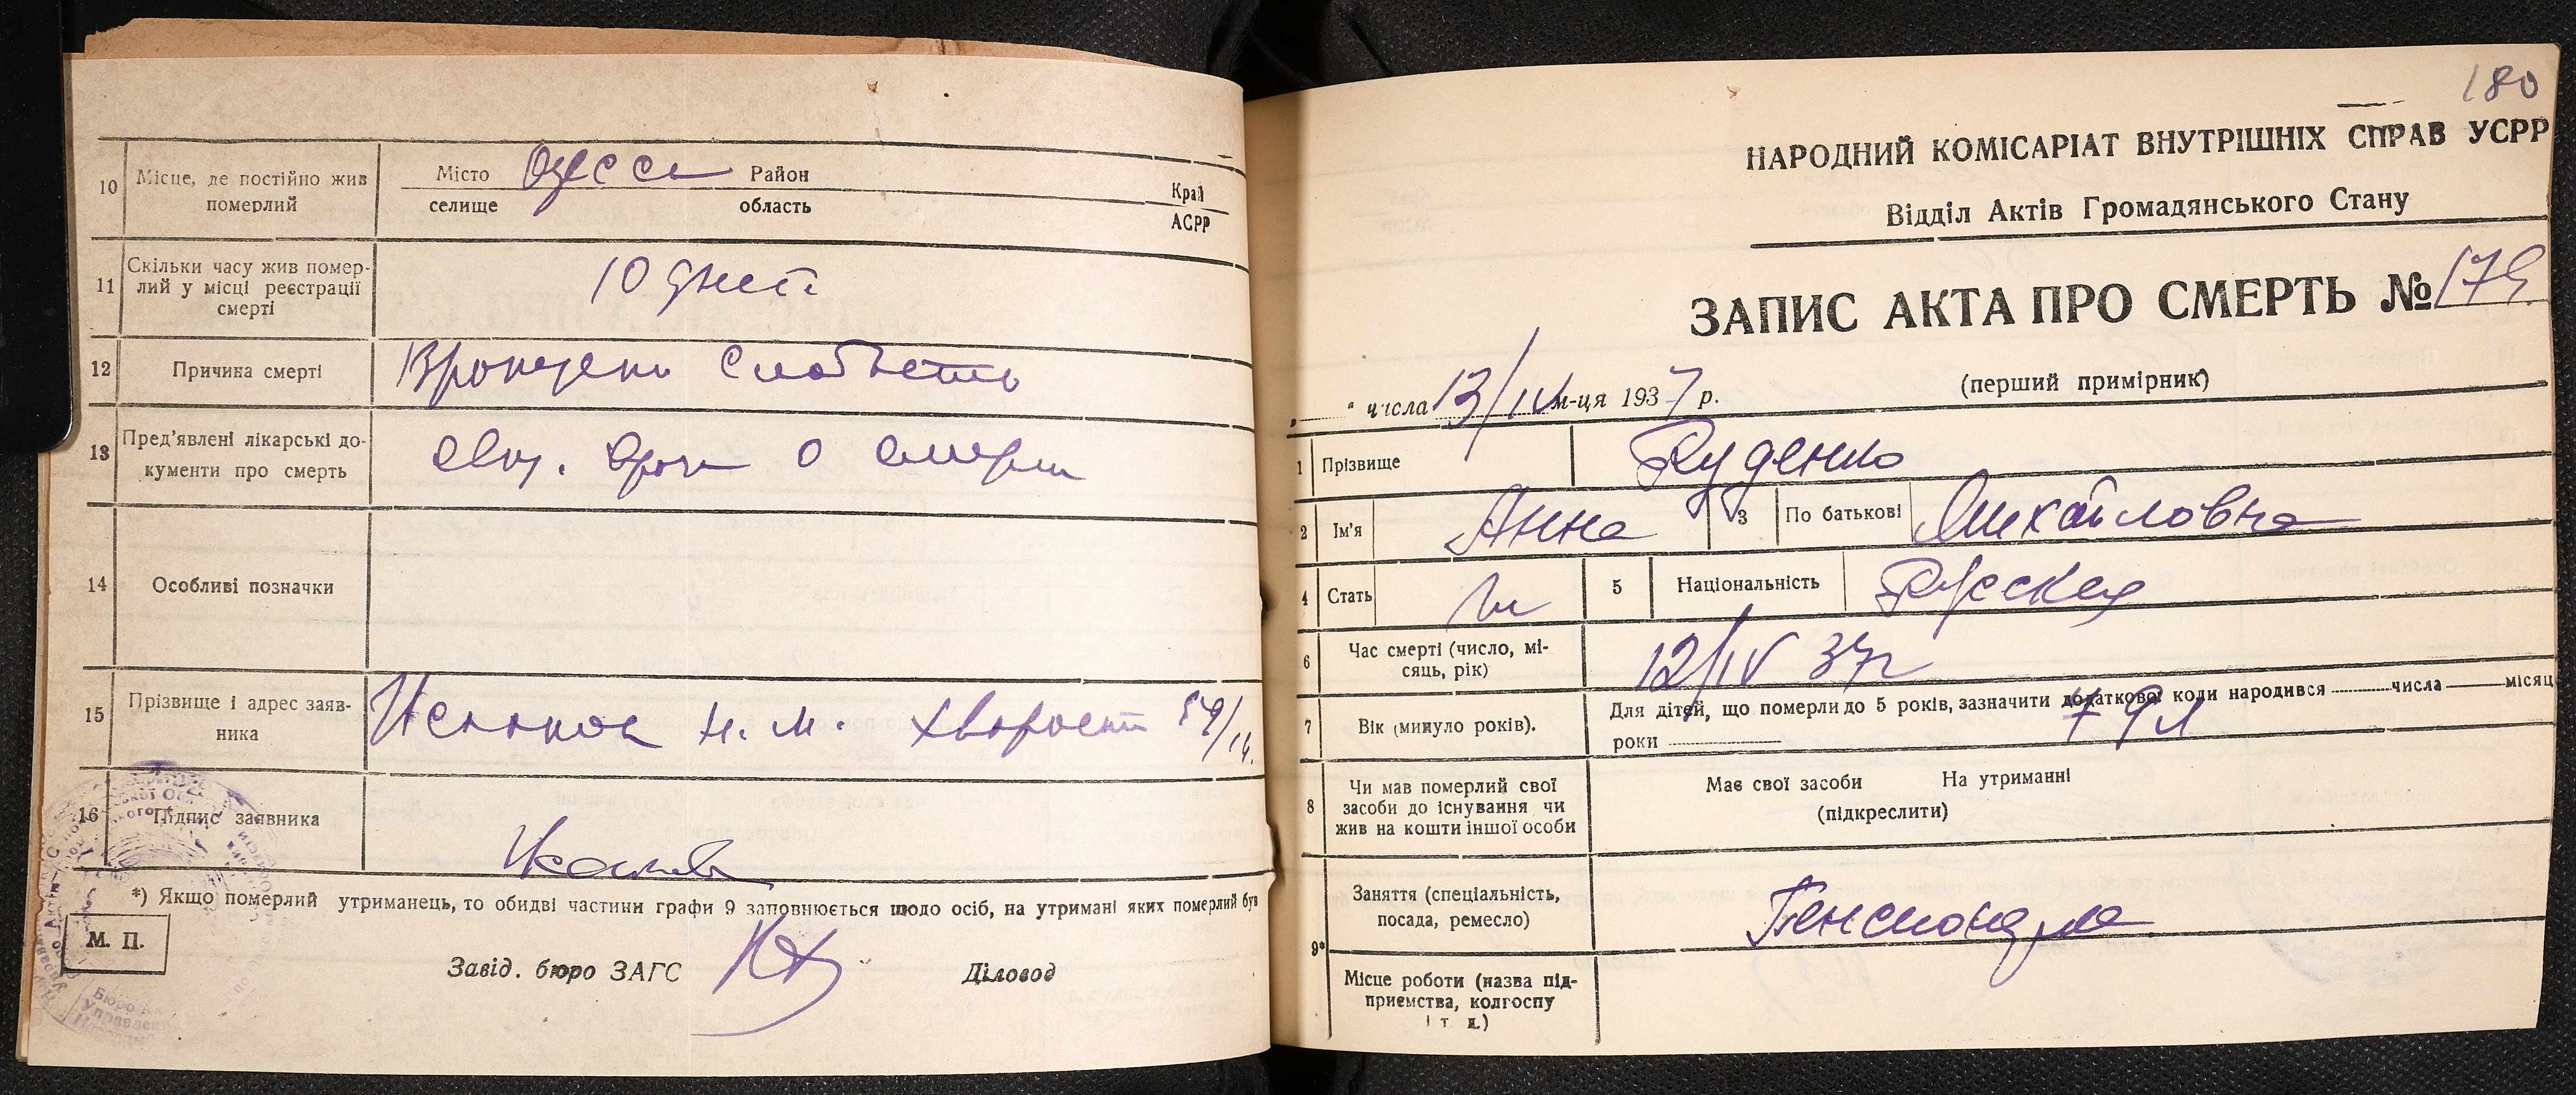 10 Місце, де постійно жив померлий
Місто Одесса Район Край
селище область АСРР
11 Скільки часу жив помер-
лий у місці реєстрації
смерті
10 дней
12 Причина смерті
Врожден слабость
13 Пред'явлені лікарські до-
кументи про смерть
врач о смерти
14 Особливі позначки
15 Прізвище і адрес заяв-
ника
Н. М. 59/14.
16 Підпис заявника
*) Якщо померлий утриманець, то обидві частини графи 9 заповнюється щодо осіб, на утримані яких померлий був
М. П.
Завід. бюро ЗАГС Діловод
180
НАРОДНИЙ КОМІСАРІАТ ВНУТРІШНІХ СПРАВ УСРР
Відділ Актів Громадянського Стану
ЗАПИС АКТА ПРО СМЕРТЬ № 179.
(перший примірник)
„ “ числа 13/IV м-ця 1937 р.
1 Прізвище Руденко
2 Ім'я Анна 3 По батькові Михайловна
4 Стать 5 Національність Русская
6 Час смерті (число, мі-
сяць, рік)
12/IV 37г
7 Вік (минуло років).
Для дітей, що померли до 5 років, зазначити додатково: коли народився числа місяц
роки
8 Чи мав померлий свої
засоби до існування чи
жив на кошти іншої особи
Має свої засоби На утриманні
(підкреслити)
9* Заняття (спеціальність,
посада, ремесло)
Місце роботи (назва під-
приємства, колгоспу
і т д.)